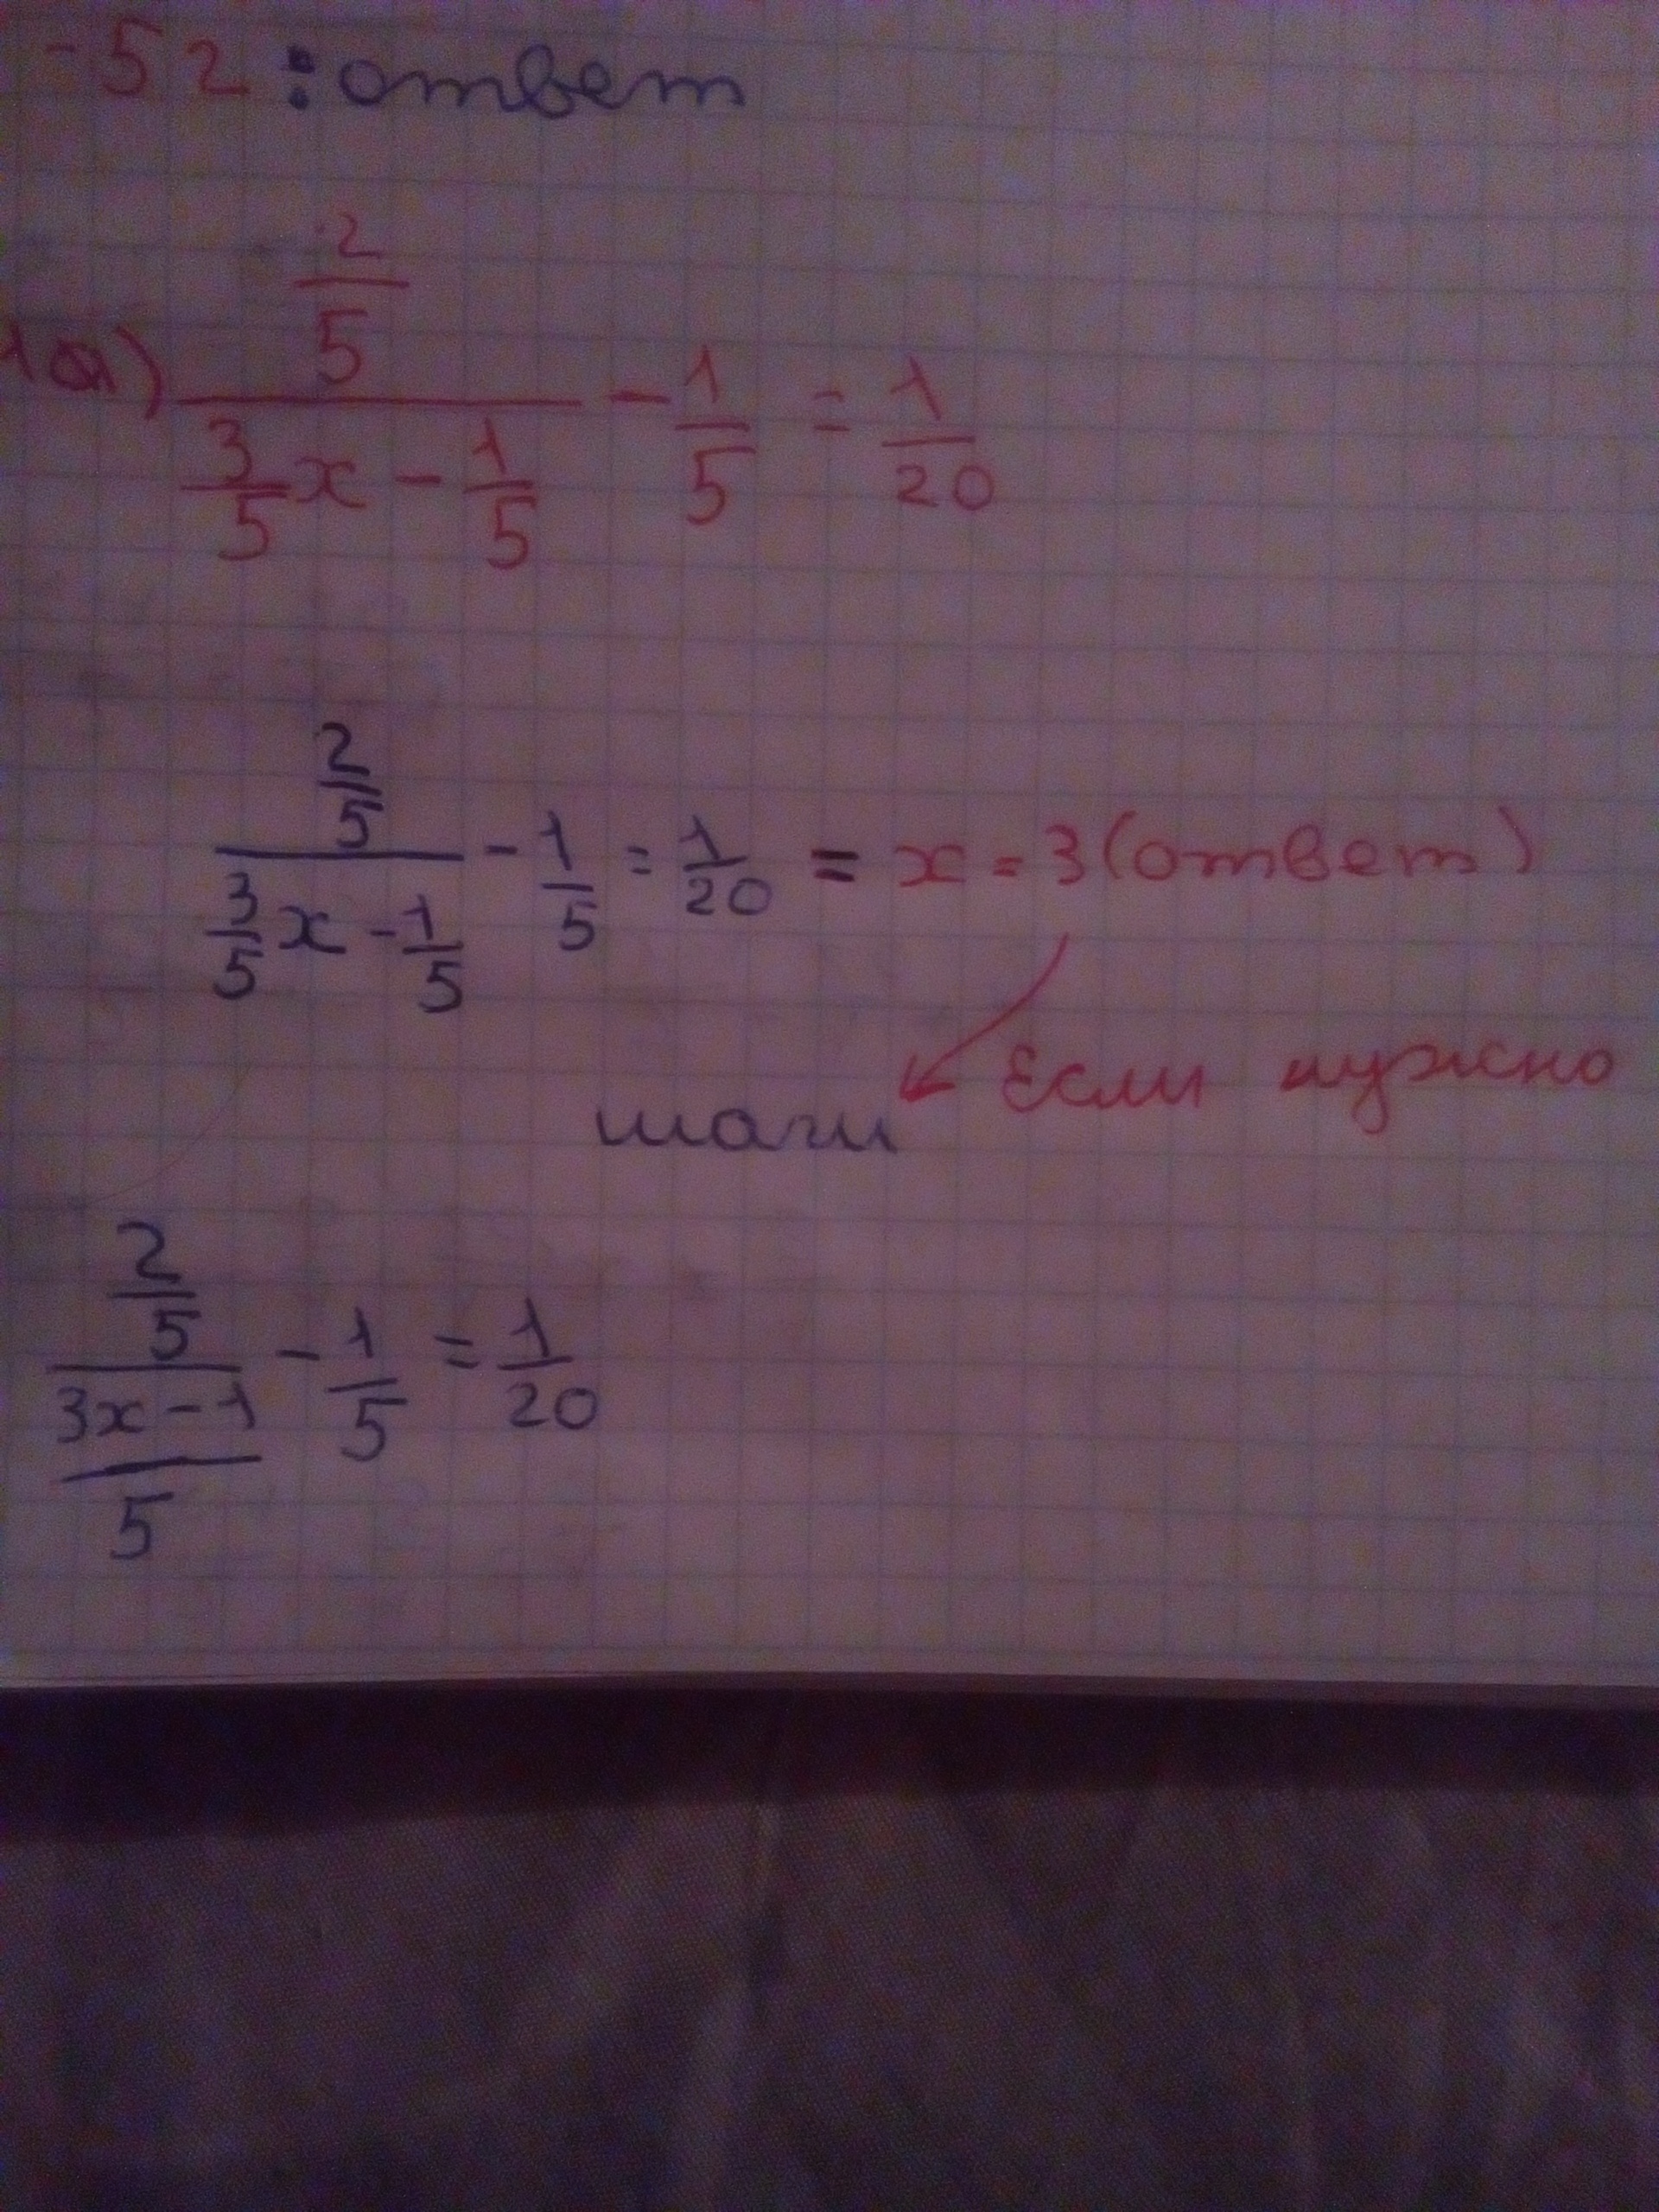 -52 : ответ
1а) (2/5)/(3/5 x - 1/5) - 1/5 = 1/20
(2/5)/(3/5 x - 1/5) - 1/5 = 1/20 = x = 3 (ответ)
Если нужно
шаги
(2/5)/((3x - 1)/5) - 1/5 = 1/20